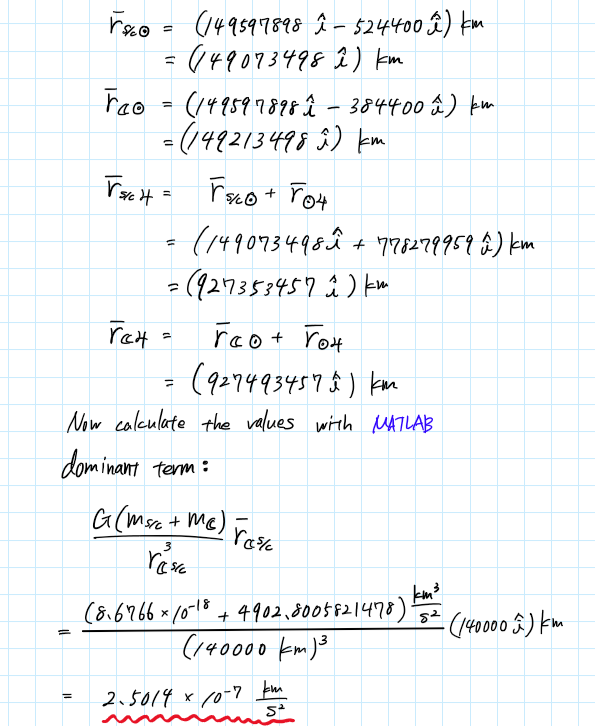 r̄_{s/c☉} = (149597898 î - 524400 î) km
= (149073498 î) km
r̄_{☾☉} = (149597898 î - 384400 î) km
= (149213498 î) km
r̄_{s/c♃} = r̄_{s/c☉} + r̄_{☉♃}
= (149073498 î + 778279959 î) km
= (927353457 î) km
r̄_{☾♃} = r̄_{☾☉} + r̄_{☉♃}
= (927493457 î) km
Now calculate the values with MATLAB
dominant term:
G(m_{s/c} + m_☾) / r³_{☾s/c} r̄_{☾s/c}
= (8.6766 × 10⁻¹⁸ + 4902.8005821478) km³/s² / (140000 km)³ (140000 î) km
= 2.5014 × 10⁻⁷ km/s²